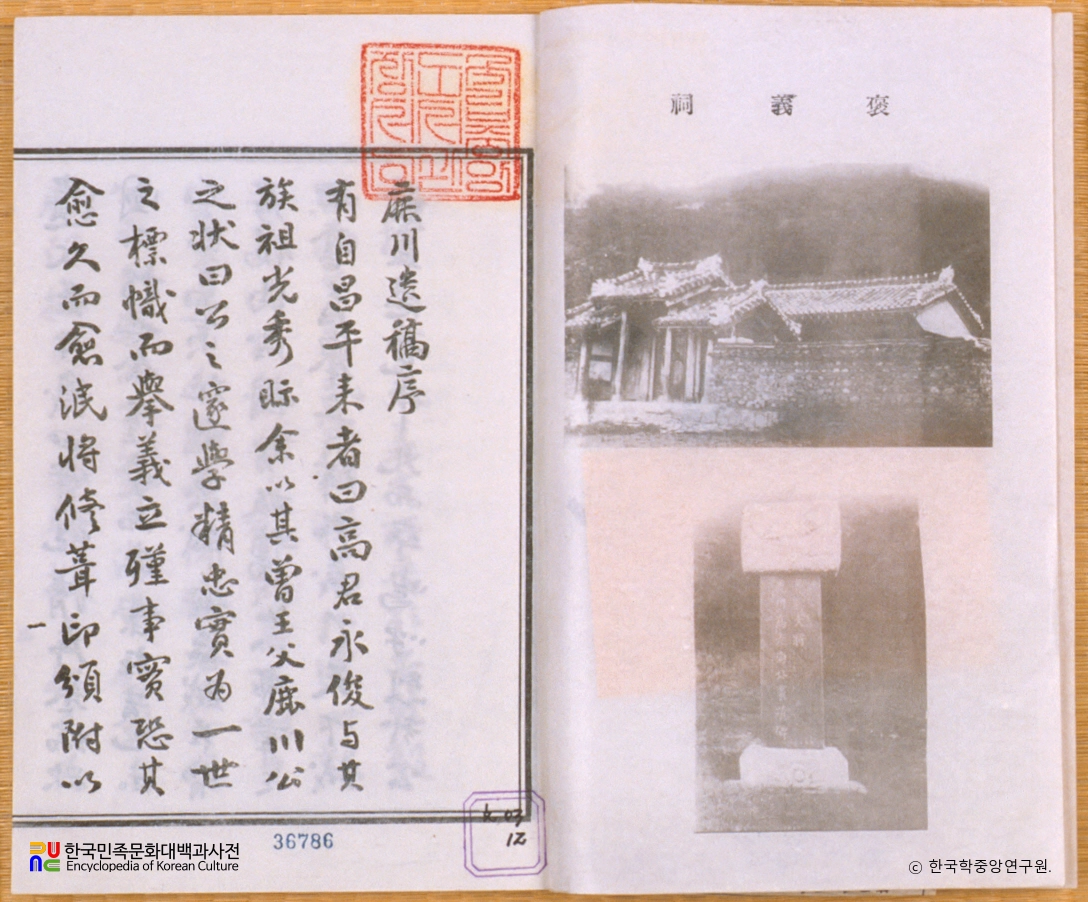 褒義祠
국립중앙
도서관
장서인
鹿川遺稿序
有自昌平来者曰高君永俊与其
族祖光秀眎余以其曾王父鹿川公
之状曰公之邃學精忠實为一世
之標幟而舉義立殣事實恐其
愈久而愈泯将修葺印頒附以
一
36786
12
한국민족문화대백과사전
Encyclopedia of Korean Culture
ⓒ 한국학중앙연구원.